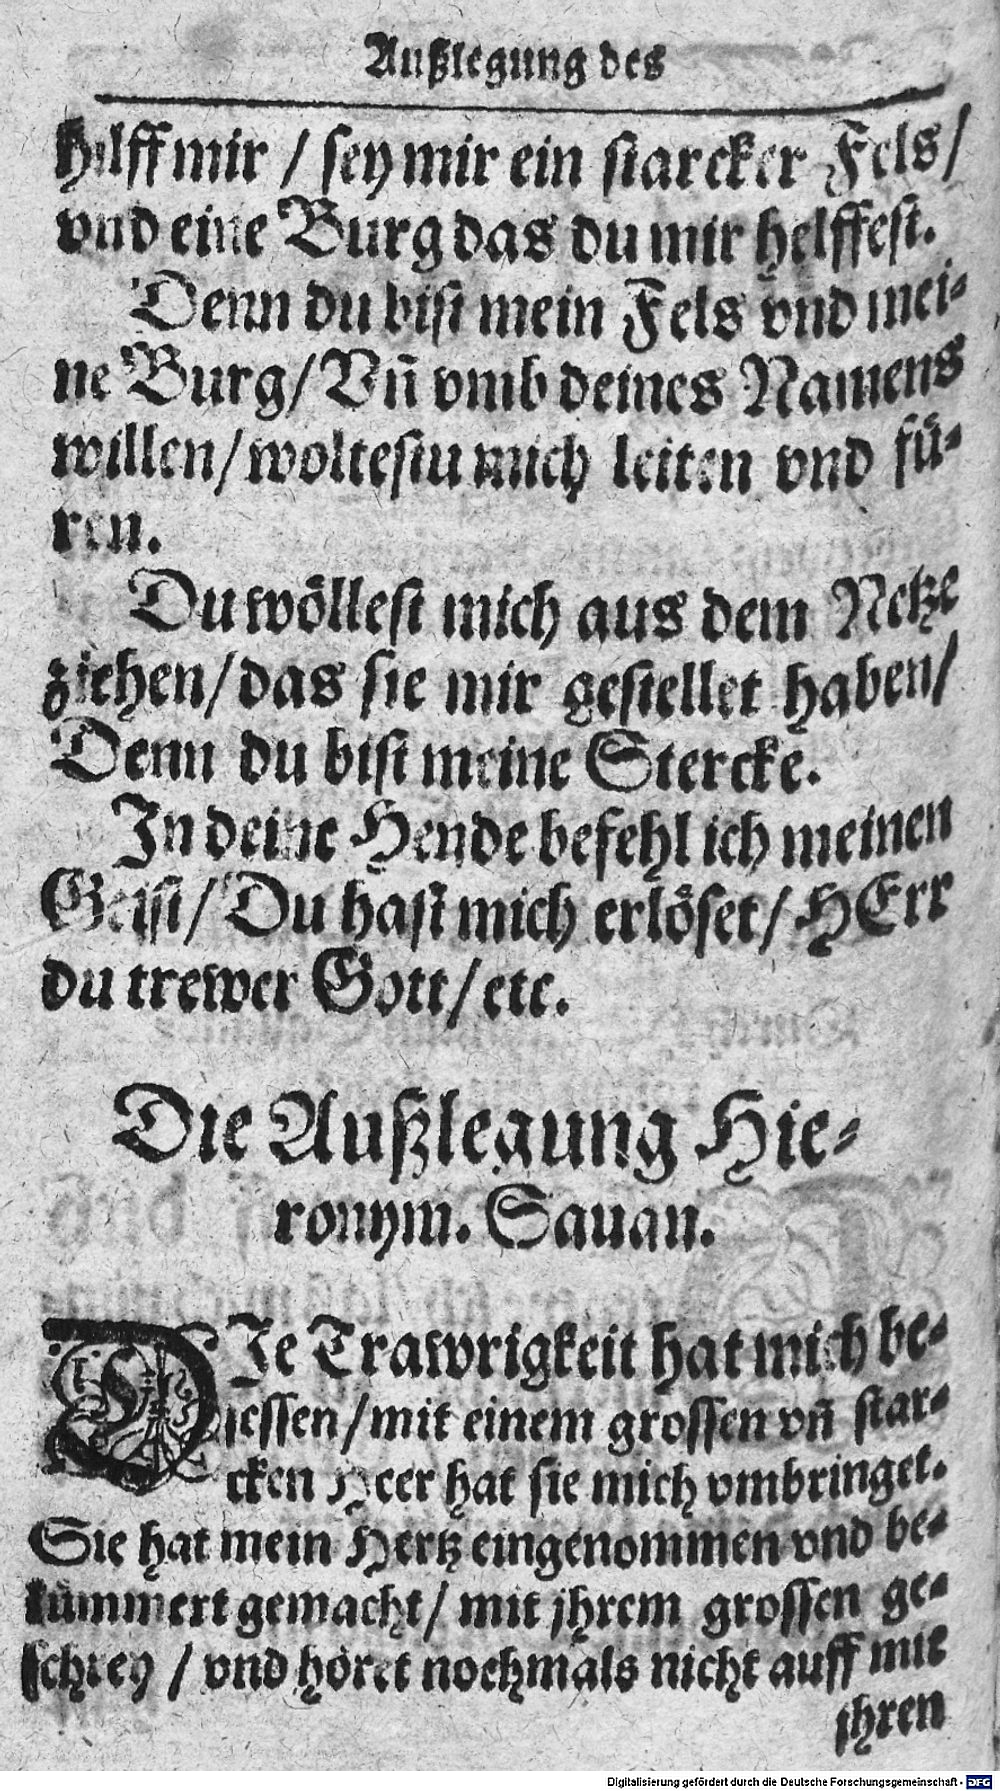 Außlegung des
hilff mir / sey mir ein starcker Fels /
vnd eine Burg das du mir helffest.
Denn du bist mein Fels vnd mei-
ne Burg / Vn̄ vmb deines Namens
willen / woltestu mich leiten vnd fuͤ-
ren.
Du woͤllest mich aus dem Netze
ziehen / das sie mir gestellet haben /
Denn du bist meine Stercke.
In deine Hende befehl ich meinen
Geist / Du hast mich erloͤset / HErr
du trewer Gott / etc.
Die Außlegung Hie-
ronym. Sauan.
DIe Trawrigkeit hat mich be-
sessen / mit einem grossen vn̄ star-
cken Heer hat sie mich vmbringet.
Sie hat mein Hertz eingenommen vnd be-
kuͤmmert gemacht / mit jhrem grossen ge-
schrey / vnd hoͤret nochmals nicht auff mit
jhren
Digitalisierung gefördert durch die Deutsche Forschungsgemeinschaft - DFG